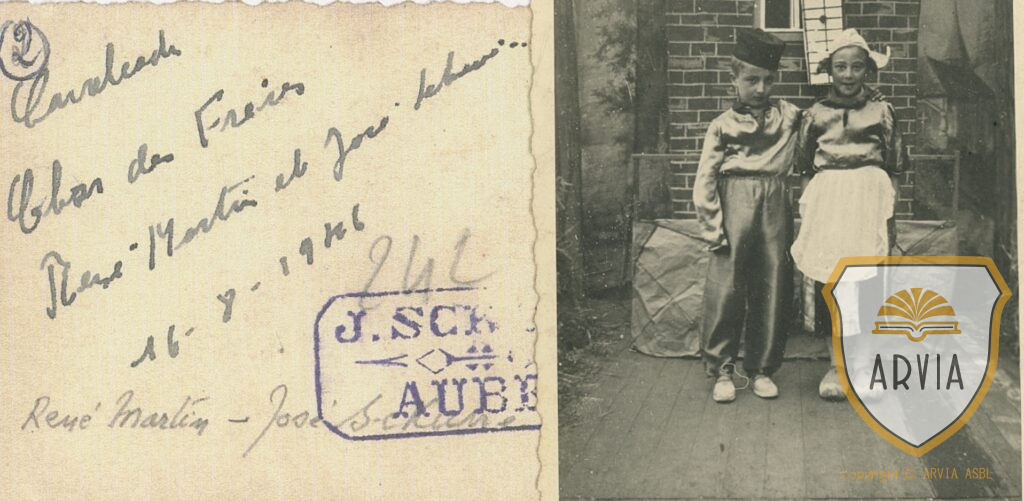 2
Cavalcade
Char des Frères
René Martin et José
16-8-1946
242
J. SCH
AUBE
René Martin - José
ARVIA
copyright: ARVIA ASBL